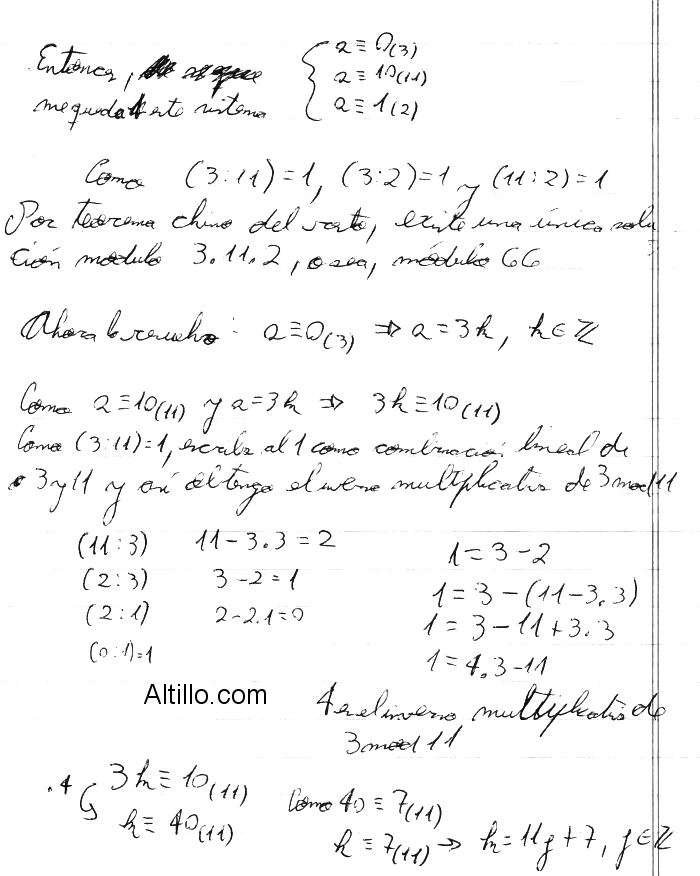 Entonces,
me queda este sistema
{ a ≡ 0 (3)
a ≡ 10 (11)
a ≡ 1 (2)
Como (3:11)=1, (3:2)=1 y (11:2)=1
Por teorema chino del resto, existe una única solu
ción módulo 3.11.2, o sea, módulo 66
Ahora lo resuelvo: a ≡ 0 (3) ⇒ a = 3k, k ∈ ℤ
Como a ≡ 10 (11) y a = 3k ⇒ 3k ≡ 10 (11)
Como (3:11)=1, escribo al 1 como combinación lineal de
3 y 11 y así obtengo el inverso multiplicativo de 3 mod 11
(11:3) 11-3.3=2
(2:3) 3-2=1
(2:1) 2-2.1=0
(0:1)=1
1=3-2
1=3-(11-3.3)
1=3-11+3.3
1=4.3-11
Altillo.com
4 es el inverso multiplicativo de
3 mod 11
.4 3k ≡ 10 (11)
k ≡ 40 (11)
Como 40 ≡ 7 (11)
k ≡ 7 (11) → k = 11q + 7, q ∈ ℤ